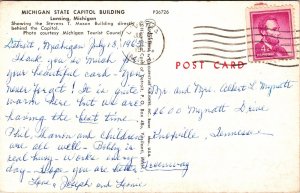 MICHIGAN STATE CAPITOL BUILDING
Lansing, Michigan
P36726
Showing the Stevens T. Mason Building directly
behind the Capitol.
Photo courtesy Michigan Tourist Council
POST CARD
Detroit, Michigan July 18, 196
Thank you so much for
your beautiful card. You
never forget! It is quite
warm here but we are
having the best time.
Phil, Sharon and children
are all well. Bobby is
real busy. works every
day. Hope you are better
Love, Joseph and
Mr. and Mrs. Albert L. Mynatt
1600 Mynatt Drive
Knoxville, Tennessee